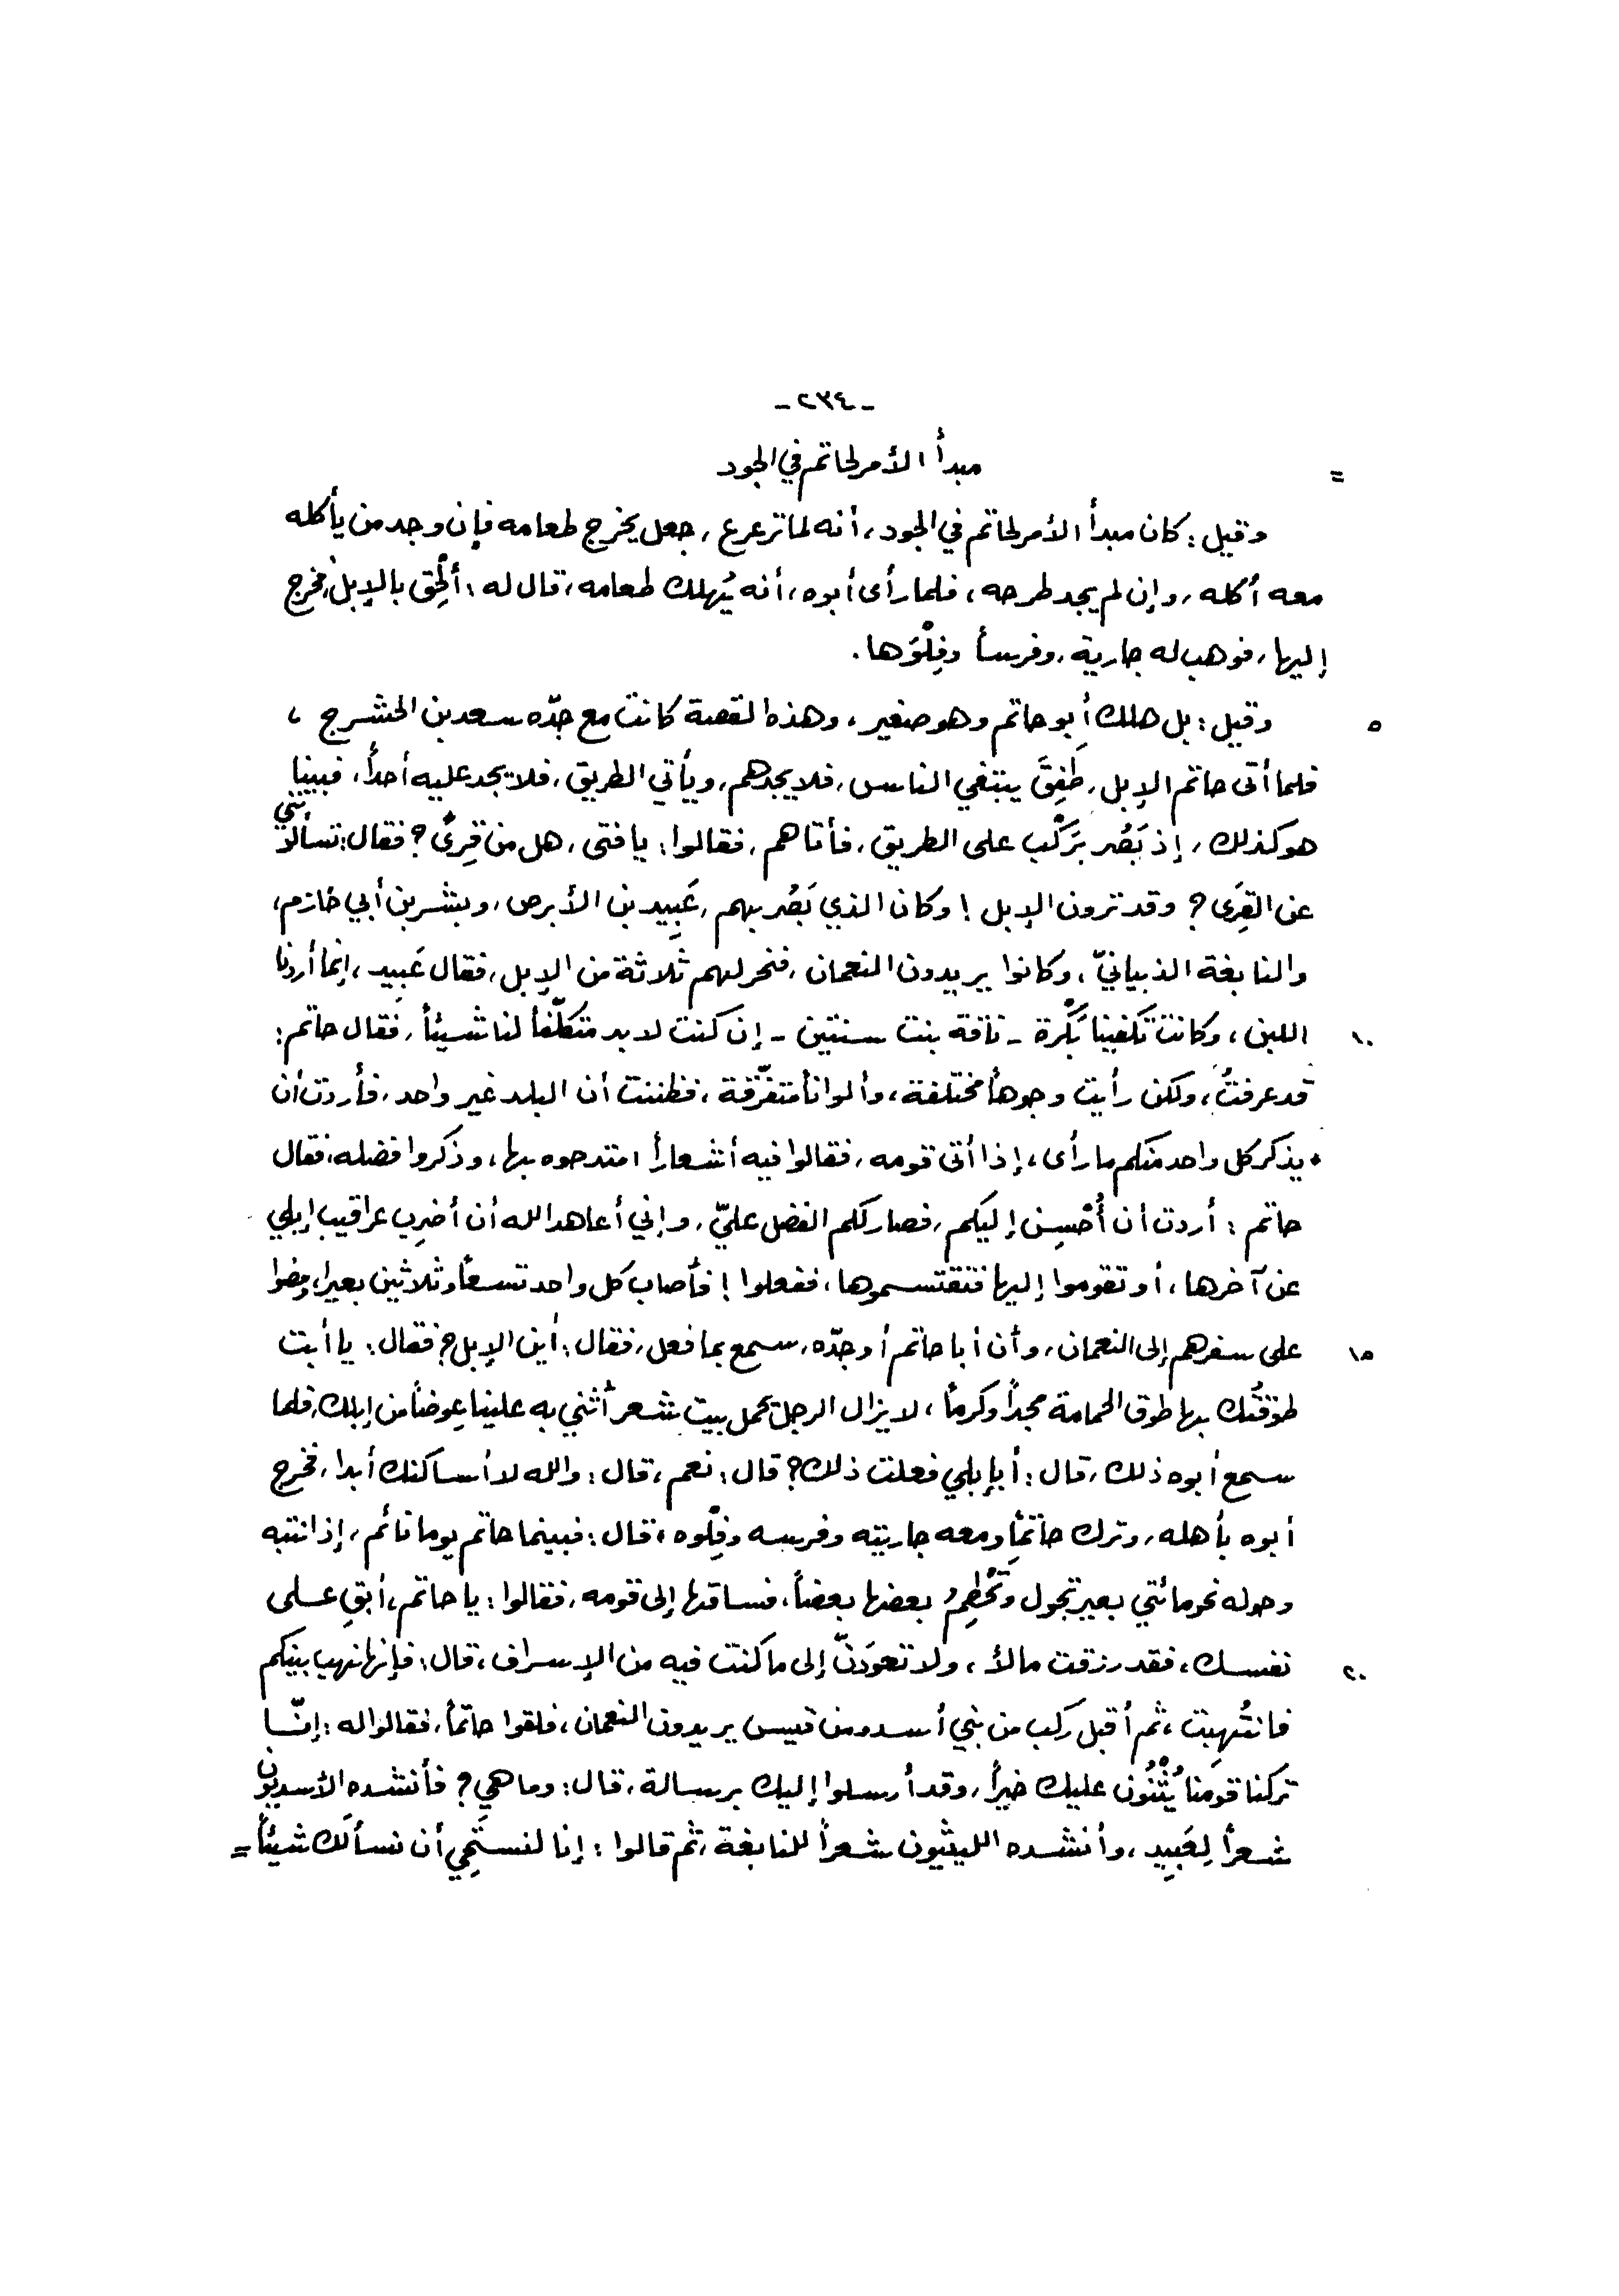 - ٢٣٤ -
= مبدأ الأمر لحاتم في الجود
وقيل: كان مبدأ الأمر لحاتم في الجود، أنه لما ترعرع، جعل يخرج طعامه فإن وجد من يأكله
معه أكله، وإن لم يجد طرحه، فلما رأى أبوه، أنه يُهلك طعامه، قال له: ألْحِق بالإبل، فخرج
إليها، فوهب له جارية، وفرساً وفِلْوَها.
٥ وقيل: بل هلك أبو حاتم وهو صغير، وهذه القصة كانت مع جدّه سعد بن الحشرج،
فلما أتى حاتم الإبل، طَفِقَ يبتغي الناس، فلا يجدهم، ويأتي الطريق، فلا يجد عليه أحداً، فبينا
هو كذلك، إذ بَصُر بَركْب على الطريق، فأتاهم، فقالوا: يا فتى، هل من قِرىً؟ فقال: تسألونني
عن القِرَى؟ وقد ترون الإبل! وكان الذي بَصُر بهم، عَبِيد بن الأبرص، وبشر بن أبي خازم،
والنابغة الذبيانيّ، وكانوا يريدون النعمان، فنحر لهم ثلاثة من الإبل، فقال عَبِيد، إنما أردنا
١٠ اللبن، وكانت تكفينا بَكْرة - ناقة بنت سنتين - إن كنت لابد متكلّفاً لنا شيئاً، فقال حاتم:
قد عرفتُ، ولكن رأيت وجوهاً مختلفة، وألواناً متفرّقة، فظننت أن البلد غير واحد، فأردت أن
يذكر كل واحد منكم ما رأى، إذا أتى قومه، فقالوا فيه أشعاراً امتدحوه بها، وذكروا فضله، فقال
حاتم: أردت أن أُحْسِن إليكم، فصار لكم الفضل عليّ، وإني أعاهد الله أن أضرِب عراقيب إبلي
عن آخرها، أو تقوموا إليها فتقتسموها، ففعلوا! فأصاب كل واحد تسعاً وثلاثين بعيراً، ومضوا
١٥ على سفرهم إلى النعمان، وأن أبا حاتم أو جدّه، سمع بما فعل، فقال: أين الإبل؟ فقال: يا أبت
طوّقتُك بها طوق الحمامة مجداً وكرماً، لا يزال الرجل يحمل بيت شعر أُثني به علينا عِوضاً من إبلك، فلما
سمع أبوه ذلك، قال: أبإبلي فعلت ذلك؟ قال: نعم، قال: والله لا أساكنك أبدا، فخرج
أبوه بأهله، وترك حاتماً ومعه جاريته وفرسه وفِلْوه، قال: فبينما حاتم يوما نائم، إذ انتبه
وحوله نحو مائتي بعير تجول وتَحْطِمُ بعضها بعضاً، فساقها إلى قومه، فقالوا: يا حاتم، أبقِ على
٢٠ نفسك، فقد رزقت مالاً، ولا تعودَنّ إلى ما كنت فيه من الإسراف، قال: فإنها نهب بينكم
فانتُهِبت، ثم أقبل ركب من بني أسد ومن قيس يريدون النعمان، فلقوا حاتماً، فقالوا له: إنّا
تركنا قومَنا يُثْنُون عليك خيراً، وقد أرسلوا إليك برسالة، قال: وما هي؟ فأنشده الأسديّون
شعراً لِعَبِيد، وأنشده الليثيون شعراً للنابغة، ثم قالوا: إنا لنستَحِي أن نسألك شيئاً =